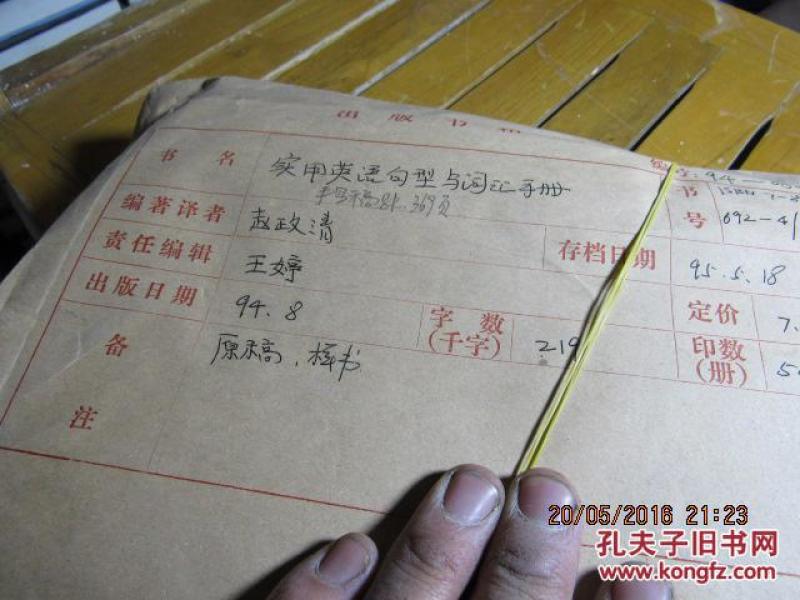 书名 实用英语句型与词汇手册
手写稿 369页
编著译者 赵政清
书号
692-4
责任编辑 王婷 存档日期 95.5.18
出版日期 94.8 字数(千字) 219 定价 7.
印数(册)
备注 原稿、样书
20/05/2016 21:23
孔夫子旧书网
www.kongfz.com